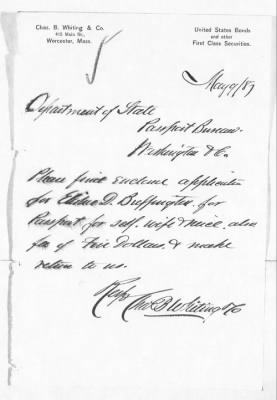 Chas. B. Whiting & Co.
415 Main St.,
Worcester, Mass.
United States Bonds
and other
First Class Securities.
May 9/89
Department of State
Passport Bureau
Washington D.C.
Please find enclosed application
for D. Buffington for
Passport for self, wife & niece, also
fee of Five Dollars, & make
return to us.
Resp
Chas B Whiting & Co